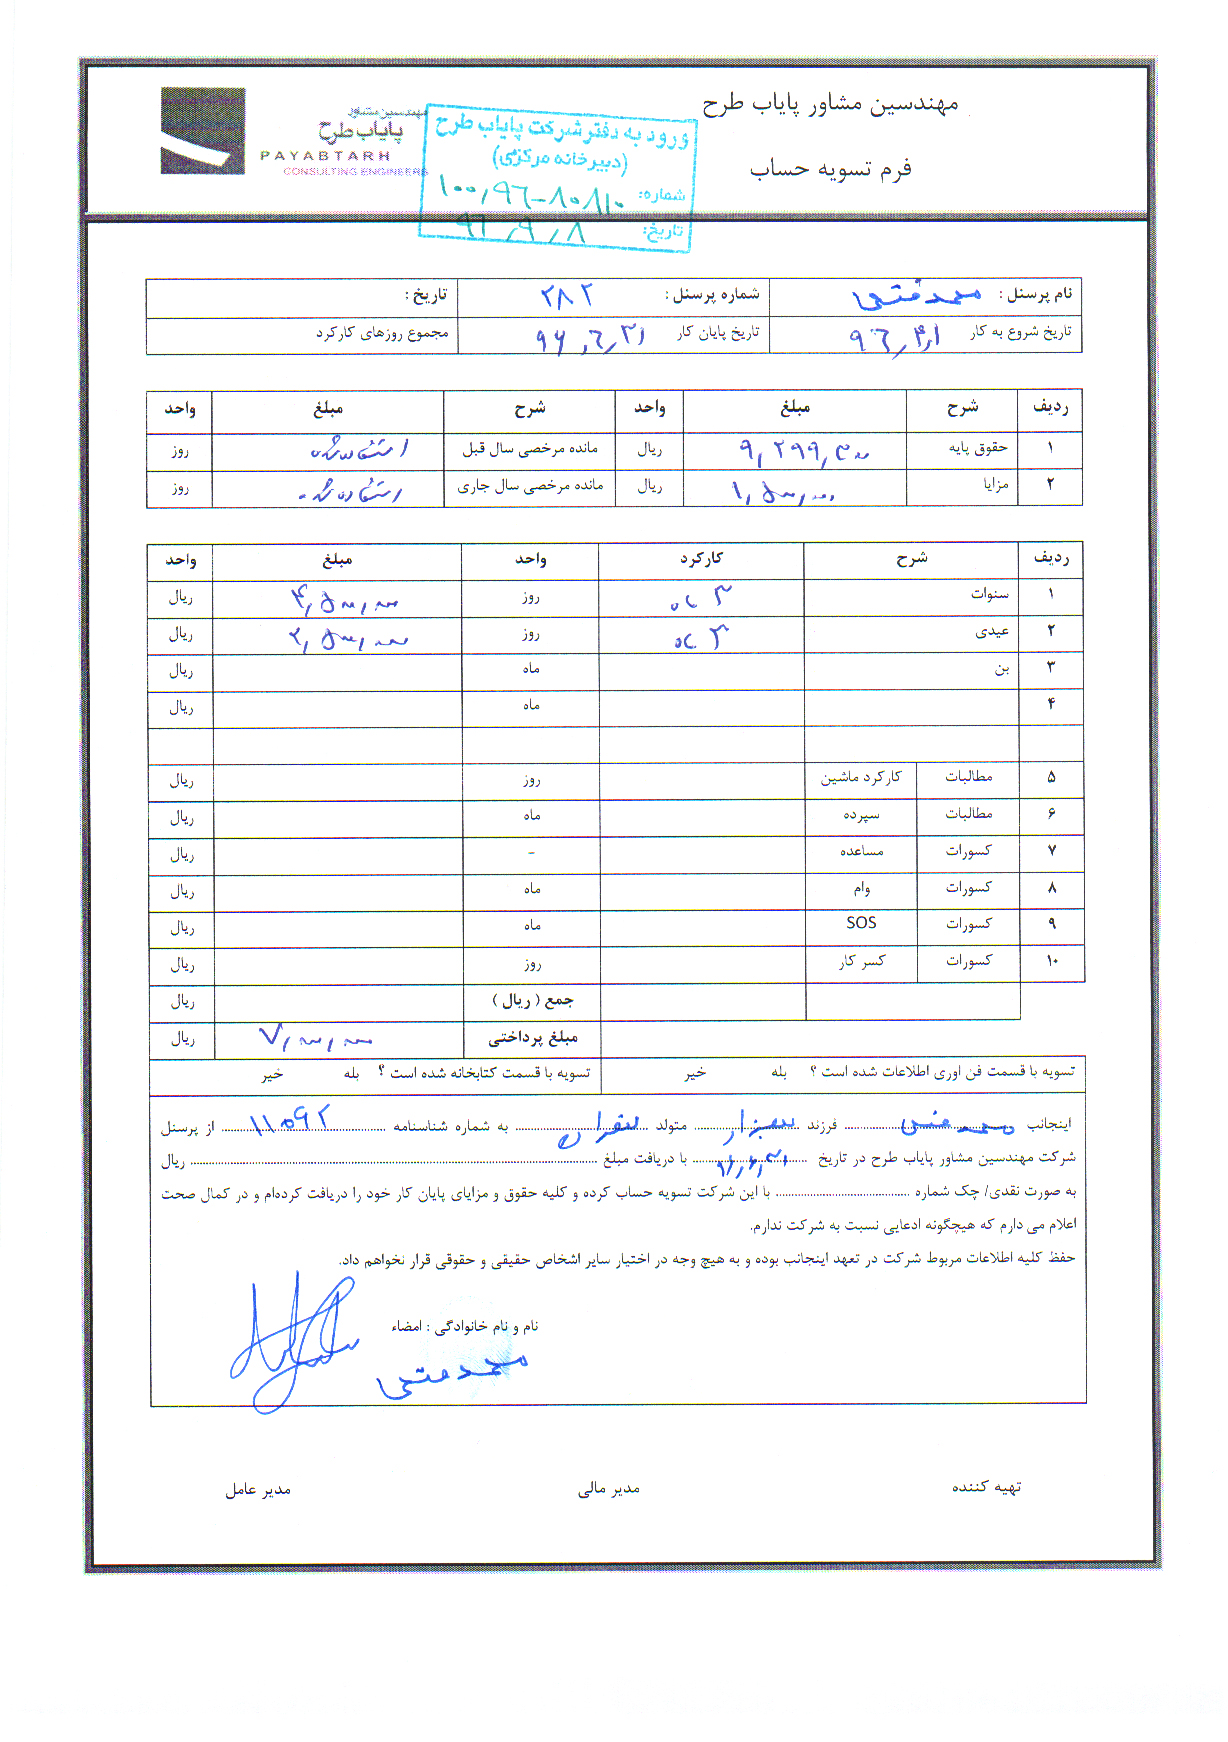 مهندسین مشاور پایاب طرح
فرم تسویه حساب
مهندسین مشاور
پایاب طرح
PAYABTARH
CONSULTING ENGINEERS
ورود به دفتر شرکت پایاب طرح
(دبیرخانه مرکزی)
شماره: ۱۰۰,۹۶-۸۰۸۱۰
تاریخ: ۹۶,۹,۸
نام پرسنل : محمد فتحی شماره پرسنل : ۲۸۲ تاریخ :
تاریخ شروع به کار ۹۶,۴,۱ تاریخ پایان کار ۹۶,۶,۳۱ مجموع روزهای کارکرد
ردیف شرح مبلغ واحد شرح مبلغ واحد
۱ حقوق پایه ۹,۲۹۹,۳۰۰ ریال مانده مرخصی سال قبل استفاده شده روز
۲ مزایا ۱,۵۰۰,۰۰۰ ریال مانده مرخصی سال جاری استفاده شده روز
ردیف شرح کارکرد واحد مبلغ واحد
۱ سنوات ۳ ماه روز ۴,۵۰۰,۰۰۰ ریال
۲ عیدی ۳ ماه روز ۲,۵۰۰,۰۰۰ ریال
۳ بن ماه ریال
۴ ماه ریال
۵ مطالبات کارکرد ماشین روز ریال
۶ مطالبات سپرده ماه ریال
۷ کسورات مساعده - ریال
۸ کسورات وام ماه ریال
۹ کسورات SOS ماه ریال
۱۰ کسورات کسر کار روز ریال
جمع ( ریال ) ریال
مبلغ پرداختی ۷,۰۰۰,۰۰۰ ریال
تسویه با قسمت فن اوری اطلاعات شده است ؟ بله خیر تسویه با قسمت کتابخانه شده است ؟ بله خیر
اینجانب محمد فتحی فرزند متولد تهران به شماره شناسنامه ۱۱۰۹۲ از پرسنل
شرکت مهندسین مشاور پایاب طرح در تاریخ ۹۶,۶,۳۱ با دریافت مبلغ ریال
به صورت نقدی/ چک شماره با این شرکت تسویه حساب کرده و کلیه حقوق و مزایای پایان کار خود را دریافت کرده‌ام و در کمال صحت
اعلام می دارم که هیچگونه ادعایی نسبت به شرکت ندارم.
حفظ کلیه اطلاعات مربوط شرکت در تعهد اینجانب بوده و به هیچ وجه در اختیار سایر اشخاص حقیقی و حقوقی قرار نخواهم داد.
نام و نام خانوادگی : امضاء
محمد فتحی
تهیه کننده مدیر مالی مدیر عامل